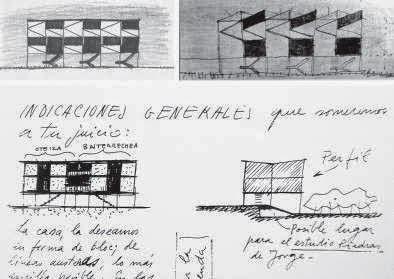 INDICACIONES GENERALES que sometemos
a tu juicio:
OTEIZA BASTERRECHEA
Perfil
La casa la deseamos
en forma de bloc, de
líneas austeras, lo más
sencilla posible. En las
Posible lugar
para el estudio Piedras
de Jorge.